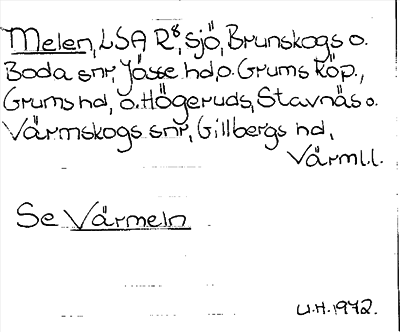 Melen, LSA R⁸, sjö, Brunskogs o.
Boda snr, Jösse hd, o. Grums köp.,
Grums hd, o. Högeruds, Stavnäs o.
Värmskogs snr, Gillbergs hd,
Värml.l.
Se Värmeln
U.H. 1972.